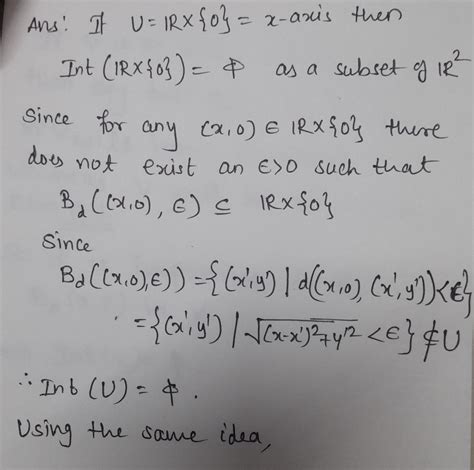 Ans: If U = ℝ×{0} = x-axis then
Int (ℝ×{0}) = ϕ as a subset of ℝ²
Since for any (x,0) ∈ ℝ×{0} there
does not exist an ε>0 such that
B_d((x,0), ε) ⊆ ℝ×{0}
Since
B_d((x,0),ε)) = {(x',y') | d((x,0), (x',y')) < ε}
= {(x',y') | √((x-x')²+y'²) < ε} ⊄ U
∴ Int (U) = ϕ.
Using the same idea,